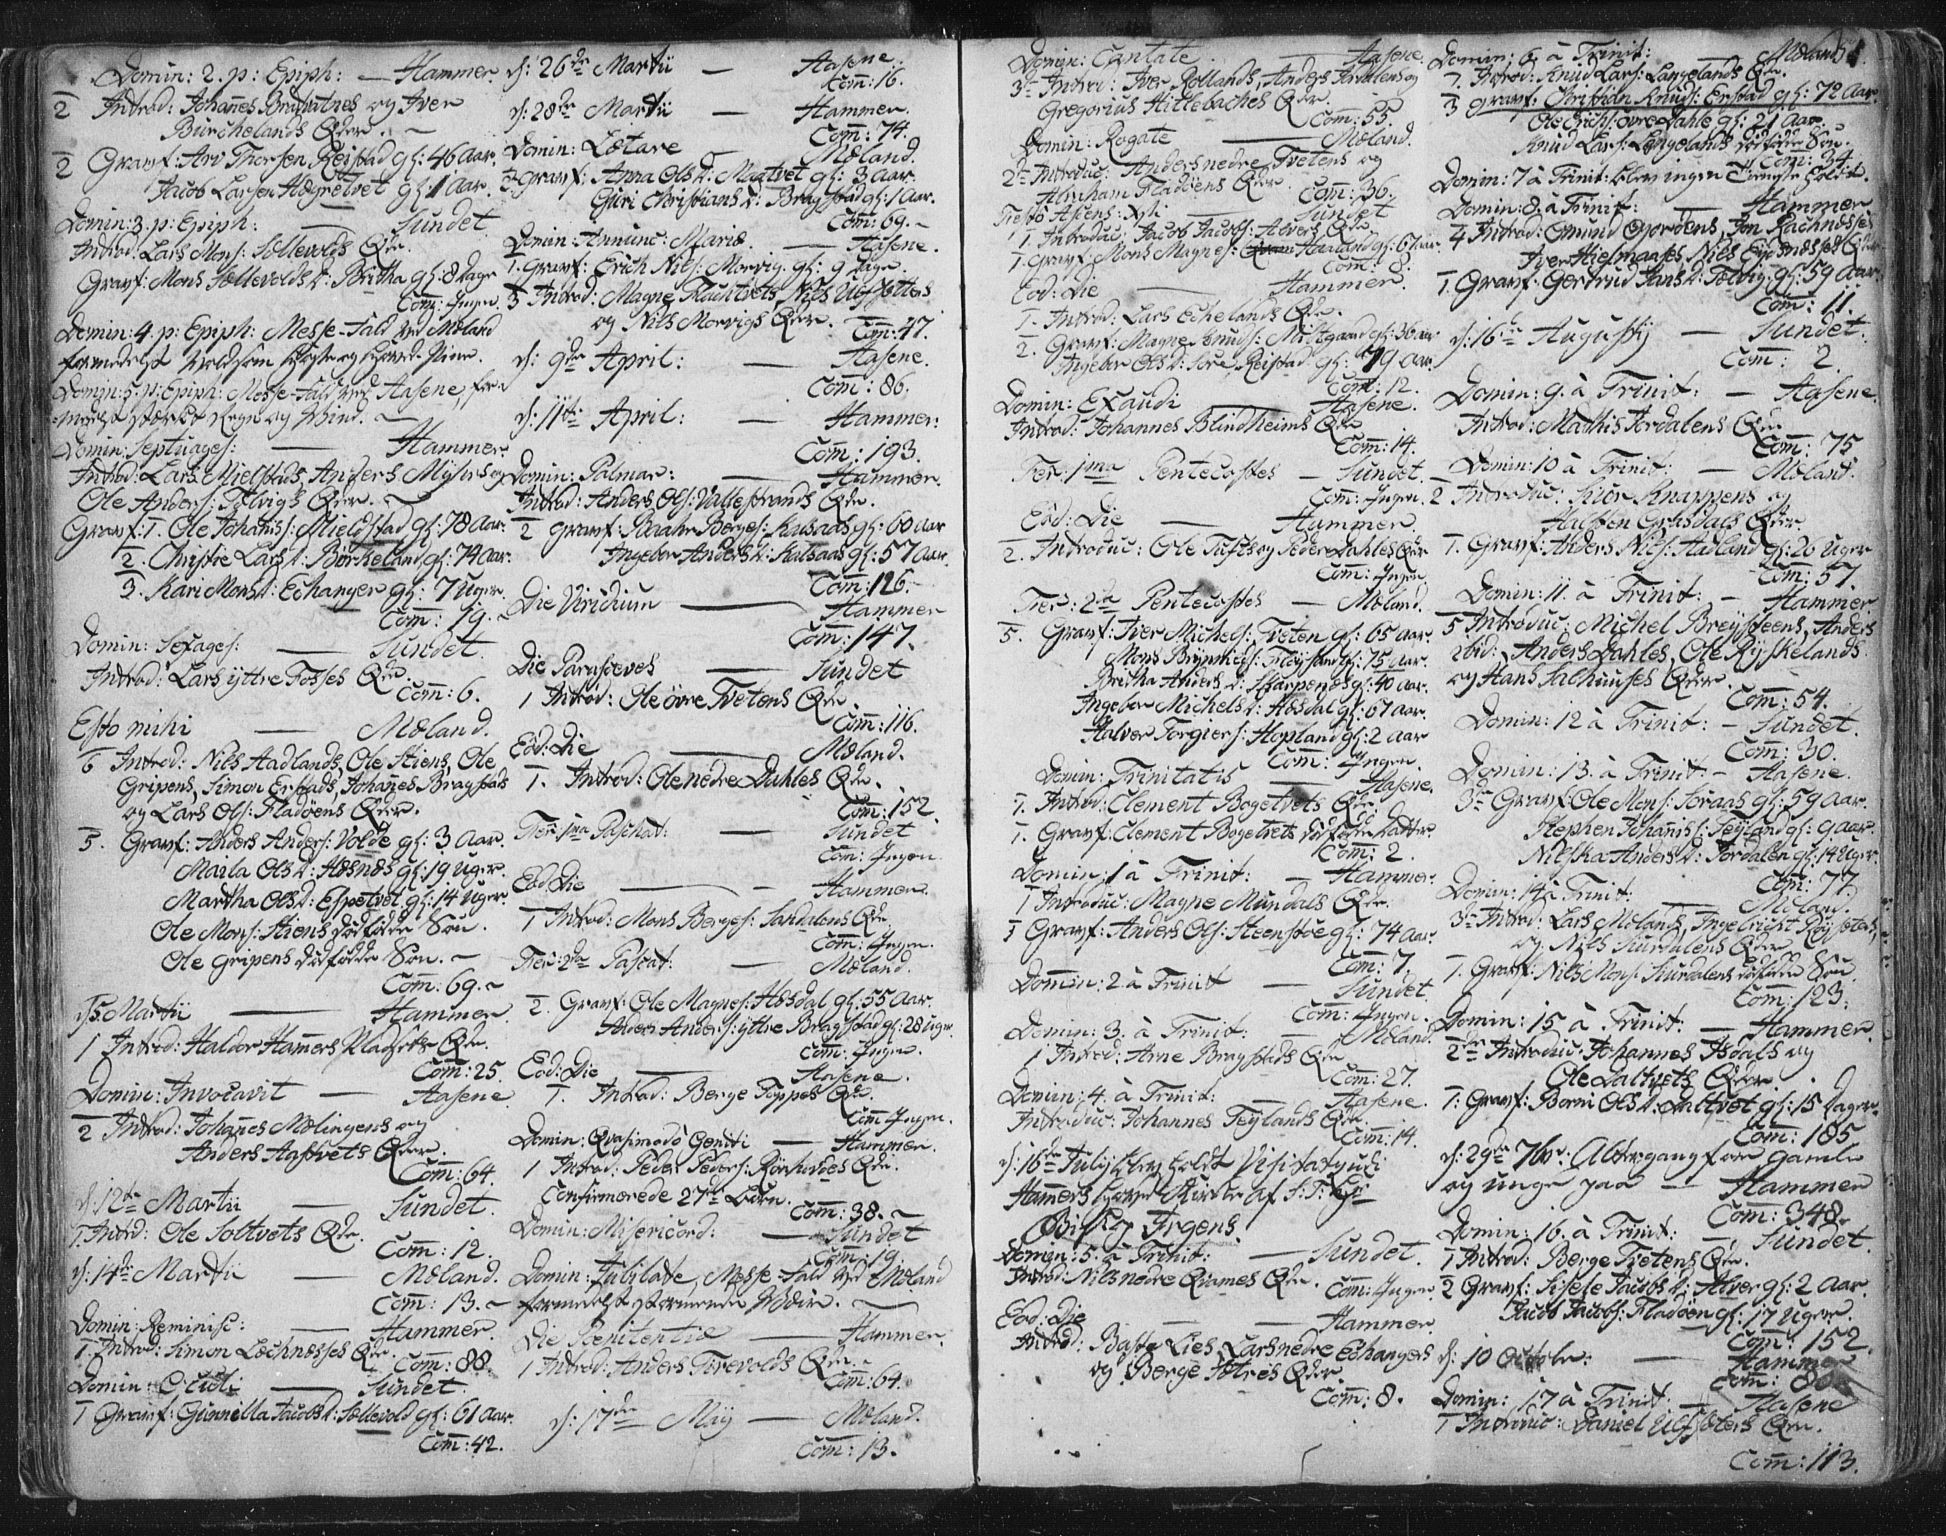 Domin: 2. p: Epiph: — Hammer
2 Introd: Johannes Bruvatnes og Iver
Burchelands Qdr.
2 Gravf: Arv Thorsen Reistad gl: 46 Aar.
Jacob Larsen Aldgretvet gl: 1 Aar.
Domin: 3. p: Epiph: — Sundet
Introd: Lars Mons: Sollevolds Qde.
Gravf: Mons Sollevolds D: Britha gl: 8 Dage
Com: Ingen.
Domin: 4. p: Epiph: Messe-Fald ved Moland
formedelst
Domin: 5. p: Epiph: Messe-Fald ved Hasene, for-
medelst stærk Regn og Wind.
Domin: Septuages: — Hammer
Introd: Lars Mielstads, Anders Mysters og
Ole Anders: Tolvigs Qdr.
Gravf: 1. Ole Johans: Mieldstad gl: 78 Aar.
2. Christie Lars D: Börkeland gl: 74 Aar.
3. Kari Mons D: Echanger gl: 7 Uger.
Com: 19.
Domin: Sexages: — Sundet.
Introd: Lars yttre Fosses Qde.
Com: 6.
Esto mihi — Moland.
6 Introd: Nils Aadlands, Ole Stiens, Ole
Gripens, Simon Erstads, Johanes Bragstads
og Lars Ols: Fladöens Qdr.
5. Gravf: Anders Anders: Volde gl: 3 Aar.
Marla Ols D: Hosnes gl: 19 Uger.
Martha Ols D: Espetvet gl: 14 Uger.
Ole Mons: Stiens dödfödde Sön.
Ole Gripens dödfödde Sön.
Com: 69.
d: 5 Martii — Hammer.
1 Introd: Haldor Hamers Qde.
Com: 25.
Domin: Invocavit — Hasene.
2 Introd: Johanes Molingens og
Anders Aastvets Qdr.
Com: 64.
d: 12te Martii — Sundet.
1. Introd: Ole Soltvets Qde.
Com: 12.
d: 14de Martii — Moland.
Com: 13.
Domin: Reminisc: — Hammer.
1. Introd: Simon Lechnesses Qde.
Com: 88.
Domin: Oculi — Sundet.
1 Gravf: Gunnilla Jacobs D: Sollevold gl: 61 Aar.
Com: 42.
d: 26de Martii — Hasene.
Com: 16.
d: 28de Martii — Hammer.
Com: 74.
Domin: Lætare — Moland.
2 Gravf: Anna Ols D: Maatvet gl: 3 Aar.
Guri Christians D: Bragstad gl: 1 Aar.
Com: 69.
Domin: Annunc: Mariæ — Hasene.
1. Gravf: Erich Nils: Morvig gl: 9 Dage.
3 Introd: Magne Flachtvets, Nils Ulfsetters
og Nils Morvigs Qdr.
Com: 47.
d: 9de April: — Hasene.
Com: 86.
d: 11te April: — Hammer:
Com: 193.
Domin: Palmar: — Hammer.
Introd: Anders Ols: Vallestrands Qde.
2 Gravf: Berges: Kalsaas gl: 60 Aar
Ingebor Anders D: Kalsaas gl: 57 Aar.
Com: 126.
Die Viridium — Hammer
Com: 147.
Die Parasceves — Sundet
1 Introd: Ole övre Tvetens Qde
Com: 116.
Eod: Die — Moland.
1. Introd: Ole nedre Dahles Qde.
Com: 152.
Fer: 1ma Paschat: — Sundet
Com: Ingen.
Eod: Die — Hammer.
1 Introd: Mons Berges: Sandalens Qde
Com: Ingen.
Fer: 2da Pascat: — Moland.
2. Gravf: Ole Magnes: Hosdal gl: 55 Aar.
Anders Anders: yttre Bragstad gl: 28 Uger.
Com: Ingen.
Eod: Die — Hasene.
1. Introd: Berge Toppes Qde.
Com: Ingen.
Domin: Qvasimodo Geniti — Hammer.
1 Introd: Peder Peders: Rönhovdes Qde.
Confirmerede 27de Börn.
Com: 38.
Domin: Misericord: — Sundet
Com: 19.
Domin: Jubilate, Messe-Fald ved Moland
formedelst stormende Wedir.
Die Poenitentiæ — Hammer.
1 Introd: Anders Tirevolds Qde.
Com: 64.
d: 17de Maij — Moland.
Com: 13.
Domin: Cantate — Hasene.
3de Introd: Iver Rollands, Anders og
Gregorius Hillebaches Qdr.
Com: 55.
Domin: Rogate — Moland.
2de Introduc: Anders nedre Tvetens og
Abraham Fladöens Qdr.
Com: 36.
Festo Ascens: Xsti — Sundet
1 Introduc: Jacob Jacobs: Alvers Qde.
1 Gravf: Mons Magnes: Haaland gl: 67 Aar
Com: 8.
Eod: Die — Hammer.
1. Introd: Lars Echelands Qde.
2. Gravf: Magne Knuds: Mestgaard gl: 36 Aar
Ingebor Ols D: Sore Reistad gl: 79 Aar.
Com: 12.
Domin: Exaudi — Hasene.
Introd: Johannes Blindheims Qde
Com: 14.
Fer: 1ma Pentecostes — Sundet.
Com: Ingen.
Eod: Die — Hammer.
2. Introduc: Ole Tufts og Peder Dahles Qdr
Com: Ingen.
Fer: 2da Pentecostes — Moland.
5. Gravf: Iver Michels: Tveten gl: 65 Aar.
Mons Brynnilds: Flöystad gl: 75 Aar.
Britha Anders D: Skarpenes gl: 40 Aar.
Ingebor Michels D: Hosdal gl: 67 Aar.
Halver Torgiers: Hopland gl: 2 Aar
Com: Ingen.
Domin: Trinitatis — Hasene.
1. Introd: Clement Bogetvets Qde.
1. Gravf: Clement Bogetvets dödfödde Datter.
Com: 2.
Domin: 1 à Trinit: — Hammer.
1 Introduc: Magne Mundals Qde.
1 Gravf: Anders Ols: Steenstoe gl: 74 Aar.
Com: 7.
Domin: 2 à Trinit — Sundet
Com: Ingen.
Domin: 3. à Trinit: — Moland.
1 Introd: Arne Bragstads Qde
Com: 27.
Domin: 4. à Trinit: — Hasene.
Introduc: Johannes Teylands Qde.
Com: 14.
d: 16de Julij blev holdt Visitatz udi
Hamers Kirke af S: T: Hr:
Biskop Irgens.
Domin: 5. à Trinit: — Sundet.
Introd: Nils nedre Qvames Qde.
Com: Ingen.
Eod: Die — Hammer.
Introd: Baste Lies, Lars nedre Echangers
og Berge Sotres Qdr.
Com: 8.
Domin: 6 à Trinit: — Moland.
1. Introd: Knud Lars: Langelands Qde.
3 Gravf: Christian Knuds: Erstad gl: 72 Aar.
Ole Erichs: övre Dahle gl: 21 Aar.
Knud Lars: Langelands dödfödde Sön.
Com: 34.
Domin: 7 à Trinit: blev ingen Tieniste holdt.
Domin: 8 à Trinit: — Hammer
4 Introd: Omund Giordens, Jon Rachnesses
Iver Hielmaases, Nils Eidsnesses Qdr
1. Gravf: Gertrud Hans D: Tolvig gl: 59 Aar.
Com: 11.
d: 16de Augustij — Sundet.
Com: 2.
Domin: 9. à Trinit: — Hasene.
Introd: Mathis Fordalens Qde
Com: 75
Domin: 10 à Trinit: — Moland.
2 Introduc: Siur Knappens og
Halsten Grasdals Qdr.
1. Gravf: Anders Nils: Aadland gl: 26 Uger
Com: 57.
Domin: 11. à Trinit: — Hammer
5 Introduc: Michel Breysteens, Anders
ibid:, Anders Dahles, Ole Rysskelands
og Hans Salhuuses Qdr.
Com: 54.
Domin: 12 à Trinit: — Sundet.
Com: 30.
Domin: 13. à Trinit: — Hasene.
3de Gravf: Ole Mons: Soraas gl: 59 Aar.
Stephen Johanis: Teyland gl: 9 Aar.
Nilska Anders D: Fordalen gl: 14 Uger.
Com: 77.
Domin: 14 à Trinit: — Moland.
3de Introd: Lars Molands, Ingebricht Röyseters,
og Nils Surdalens Qdr.
1. Gravf: Nils Mons: Surdalens dödfödde Sön.
Com: 123.
Domin: 15 à Trinit: — Hammer.
2de Introduc: Johannes Isdals og
Ole Daltvets Qdr.
1. Gravf: Borni Ols D: Daltvet gl: 15 Dager.
Com: 185
d: 29de 7br: Altergang for gamle
og unge paa — Hammer
Com: 348.
Domin: 16. à Trinit: — Sundet.
1 Introd: Berge Tvetens Qde.
2 Gravf: Sisele Jacobs D: Alver gl: 2 Aar.
Jacob Jacobs: Fladöen gl: 17 Uger.
Com: 152.
d: 10 Octobr: — Hammer
Com: 80
Domin: 17 à Trinit. — Hasene
1 Introduc: Daniel Ulfseters Qde.
Com: 113.